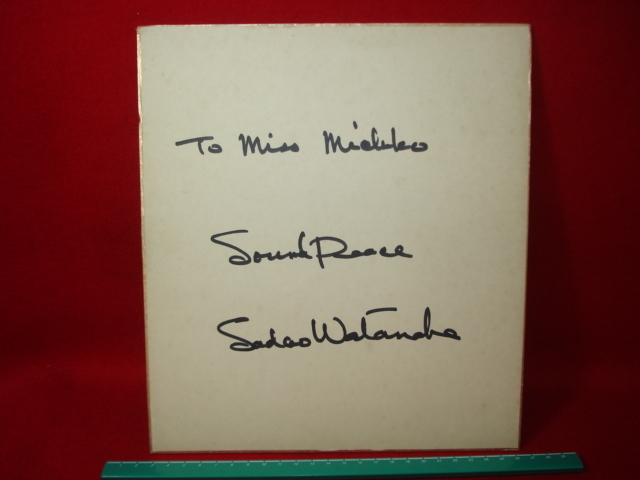 To Miss Michiko
Sound Peace
Sadao Watanabe